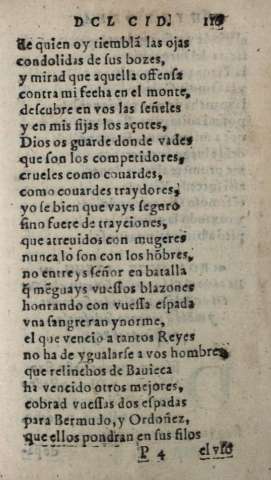 DCL CID.
de quien oy tiemblã las ojas
condolidas de sus bozes,
y mirad que aquella offensa
contra mi fecha en el monte,
descubre en vos las señeles
y en mis fijas los açotes,
Dios os guarde donde vades
que son los competidores,
crueles como couardes,
como couardes traydores,
yo se bien que vays seguro
sino fuere de trayciones,
que atreuidos con mugeres
nunca lo son con los hõbres,
no entreys señor en batalla
q̃ mẽguays vuessos blazones
honrando con vuessa espada
vna sangre ran ynorme,
el que vencio a tantos Reyes
no ha de ygualarse a vos hombres
que relinchos de Bauieca
ha vencido otros mejores,
cobrad vuessas dos espadas
para Bermudo, y Ordoñez,
que ellos pondran en sus filos
P 4 el vso